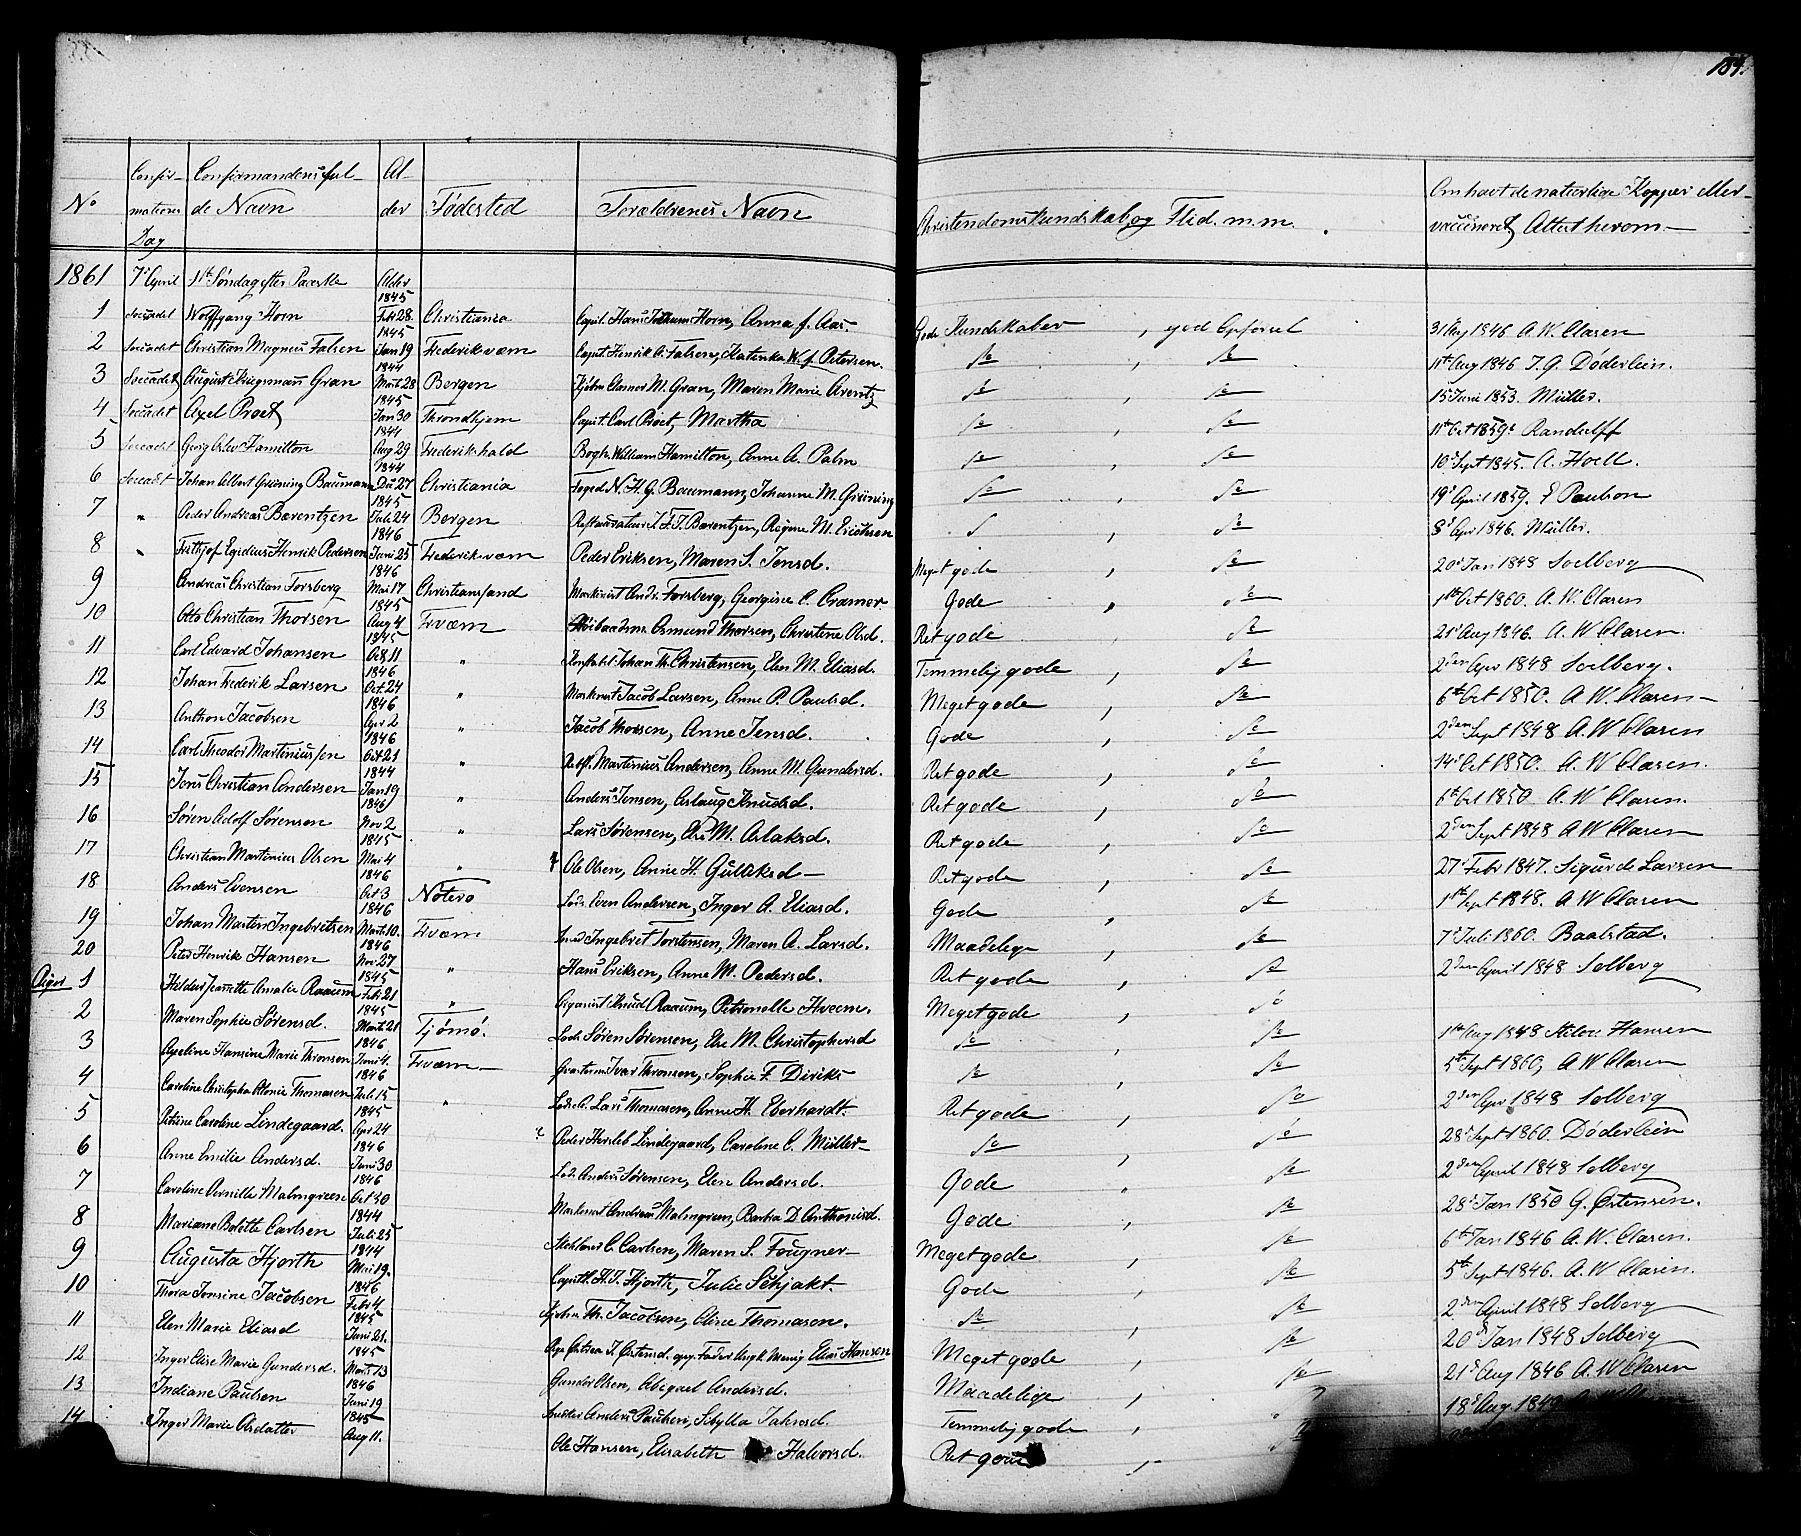 184.
No Confir- Confirmandens ful- Al- Fødested Forældrenes Navn Christendomskundskab og Flid. m.m. Om havt de naturlige Kopper eller
mations de Navn der vaccineret, Attest herom.
Dag
1861 7de April 1ste Søndag efter Paaske Alder
1 Søcadet Wolffgang Horn 1845 Febr 28 Christiania Capit. Hans Horn, Anna f. Aas Gode Kundskaber, god Opførsel 31 Aug 1846 A. W. Clasen
2 Søcadet Christian Magnus Falsen 1845 Jan 19 Frederiksværn Capt. Henrik A. Falsen, Katinka W. f. Petersen. do, do 11te Aug 1846 J. G. Døderlein.
3 Søcadet August Kriegsmann Gran 1844 Marts 28 Bergen Kjøbm Clamer M. Gran, Maren Marie Arentz do, do 15 Juni 1853. Müller.
4 Søcadet Axel Proet 1845 Jan 30 Throndhjem Capt. Carl Proet, Martha do, do 11te Oct 1859 Randulff
5 Søcadet Georg Oslev Hamilton 1844 Aug 29 Frederikshald Bogh. William Hamilton, Anne A. Palm do, do 10 Sept 1845. A. Hoell.
6 Søcadt Johan Albert Grüning Baumann 1844 Dec 27 Christiania Foged N. H. G. Baumann, Johanne M. Grüning do, do 19 April 1859. Paulson
7 " Peder Andreas Bærentzen 1845 Juli 24 Bergen Restaurateur J. F. T. Bærentzen, Regine M. Erichsen do, do 8 Apr 1846. Müller.
8 " Frithjof Egidius Henrik Pedersen 1846 Juni 25 Frederiksværn Peder Eriksen, Maren S. Jensd. Meget gode, do 20 Jan 1848 Soelberg
9 Andreas Christian Forsberg 1846 Mai 17 Christiansand Maskinist Andr. Forsberg, Georgine C. Cramer Gode, do 1ste Oct 1860. A. W. Clasen
10 Otto Christian Thorsen 1845 Aug 4 Fr.værn Osmund Thorsen, Christine Olsd. Ret gode, do 21 Aug 1846. A. W Clasen.
11 Carl Edvard Johansen 1845 Oct 11 " Konstabel Johan Th. Christensen, Elen M. Eliasd. Temmelig gode, do 2den Apr 1848 Soelberg.
12 Johan Frederik Larsen 1846 Oct. 24 " Maskinist Jacob Larsen, Anne P. Paulsd. Meget gode, do 6te Oct 1850. A. W. Clasen
13 Anthon Jacobsen 1846 Apr 2 " Jacob Thorsen, Anne Jensd. Gode, do 2den Sept 1848 A. W. Clasen
14 Carl Theodor Martiniussen 1846 Oct 21 " Martinius Andersen, Anne M. Gundersd. Ret gode, do 14 Oct 1850. A. W Clasen.
15 Jens Christian Andersen 1844 Jan 19 " Anders Jensen, Aslaug Knudsd. Ret gode, do 6te Oct 1850 A. W Clasen.
16 Søren Adolf Sørensen 1846 Nov 2 " Lars Sørensen, Else M. Aslaksd. Ret gode, do 2den Sept 1848 A. W Clasen
17 Christian Martinius Olsen 1845 Mai 4 " Ole Olsen, Anne H. Gulliksd Ret gode, do 27 Febr 1847. Sigurd Larsen
18 Anders Evensen 1846 Oct 3 Nøterø Lods Even Andersen, Inger A. Eliasd. Gode, do 1ste Sept 1848. A. W. Clasen
19 Johan Martin Ingebretsen 1846 Marts 10. Fr.værn Ingebret Torstensen, Maren A. Larsd. Maadelige, do 7 Juli 1860. Baalstad.
20 Peter Henrik Hansen 1846 Nov 27 " Hans Eriksen, Anne M. Pedersd. Ret gode, do 2den April 1848 Solberg
Piger 1 Hildur Jeanette Amalie Raaum 1845 Febr 21 " Organist Knud Raaum, Petronelle Hveem. Meget gode, do
2 Maren Sophie Sørensd. 1845 Marts 21 Tjømø. Lods Søren Sørensen, Else M. Christophersd do, do 1ste Aug 1848 Hansen
3 Axeline Hansine Marie Thronsen 1846 Juni 4. Fr.værn Qvarterm Ivar Thronsen, Sophie F. Diriks do, do 5te Sept 1860, A. W. Clasen
4 Caroline Christopha Thomasen 1846 Juli 15 " Lars Thomasen, Anne H. Eberhardt. Ret gode, do 2den Apr 1848 Solberg
5 Petrine Caroline Lindegaard. 1845 Apr 24 Peder Hersleb Lindegaard, Caroline C. Müller do, do 28 Sept 1860. Døderlein
6 Anne Emilie Andersd. 1846 Juni 30 Lods Anders Sørensen, Elen Andersd. Gode, do 2den April 1848 Solberg
7 Caroline Pernille Malmgreen 1846 Oct 30 Maskinist Andreas Malmgreen, Barbra D. Anthonisd. Gode, do 28 Jan 1850 G. Ørtensen.
8 Mariane Bolette Carlsen 1844 Juli 25 C. Carlsen, Maren S. Fougner Meget gode, do 6te Jan 1846 A. W. Clasen.
9 Augusta Hjorth 1844 Mai 19. Captlt. H. J. Hjorth, Julie Schjøtt. Gode, do 5te Sept 1846. A. W Clasen.
10 Thora Jonsine Jacobsen 1846 Febr 4 Th. Jacobsen, Oline Thomasen. do, do 2den April 1848 Solberg
11 Elen Marie Eliasd 1845 Juni 21. Fader Elias Hansen Meget gode, do 20 Jan 1848 Solberg
12 Inger Elise Marie Gundersd. 1845 Marts 13 Gunder Olsen, Abigael Andersd. Maadelige, do 21 Aug 1846 A. W Clasen
13 Indiane Paulsen 1846 Juni 19 Anders Paulsen, Sibylla Jahnsd. Temmelig gode, 18 Aug 1849.
14 Inger Marie Olsdatter 1845 Aug 11. Ole Hansen, Elisabeth Halvorsd. Ret gode,